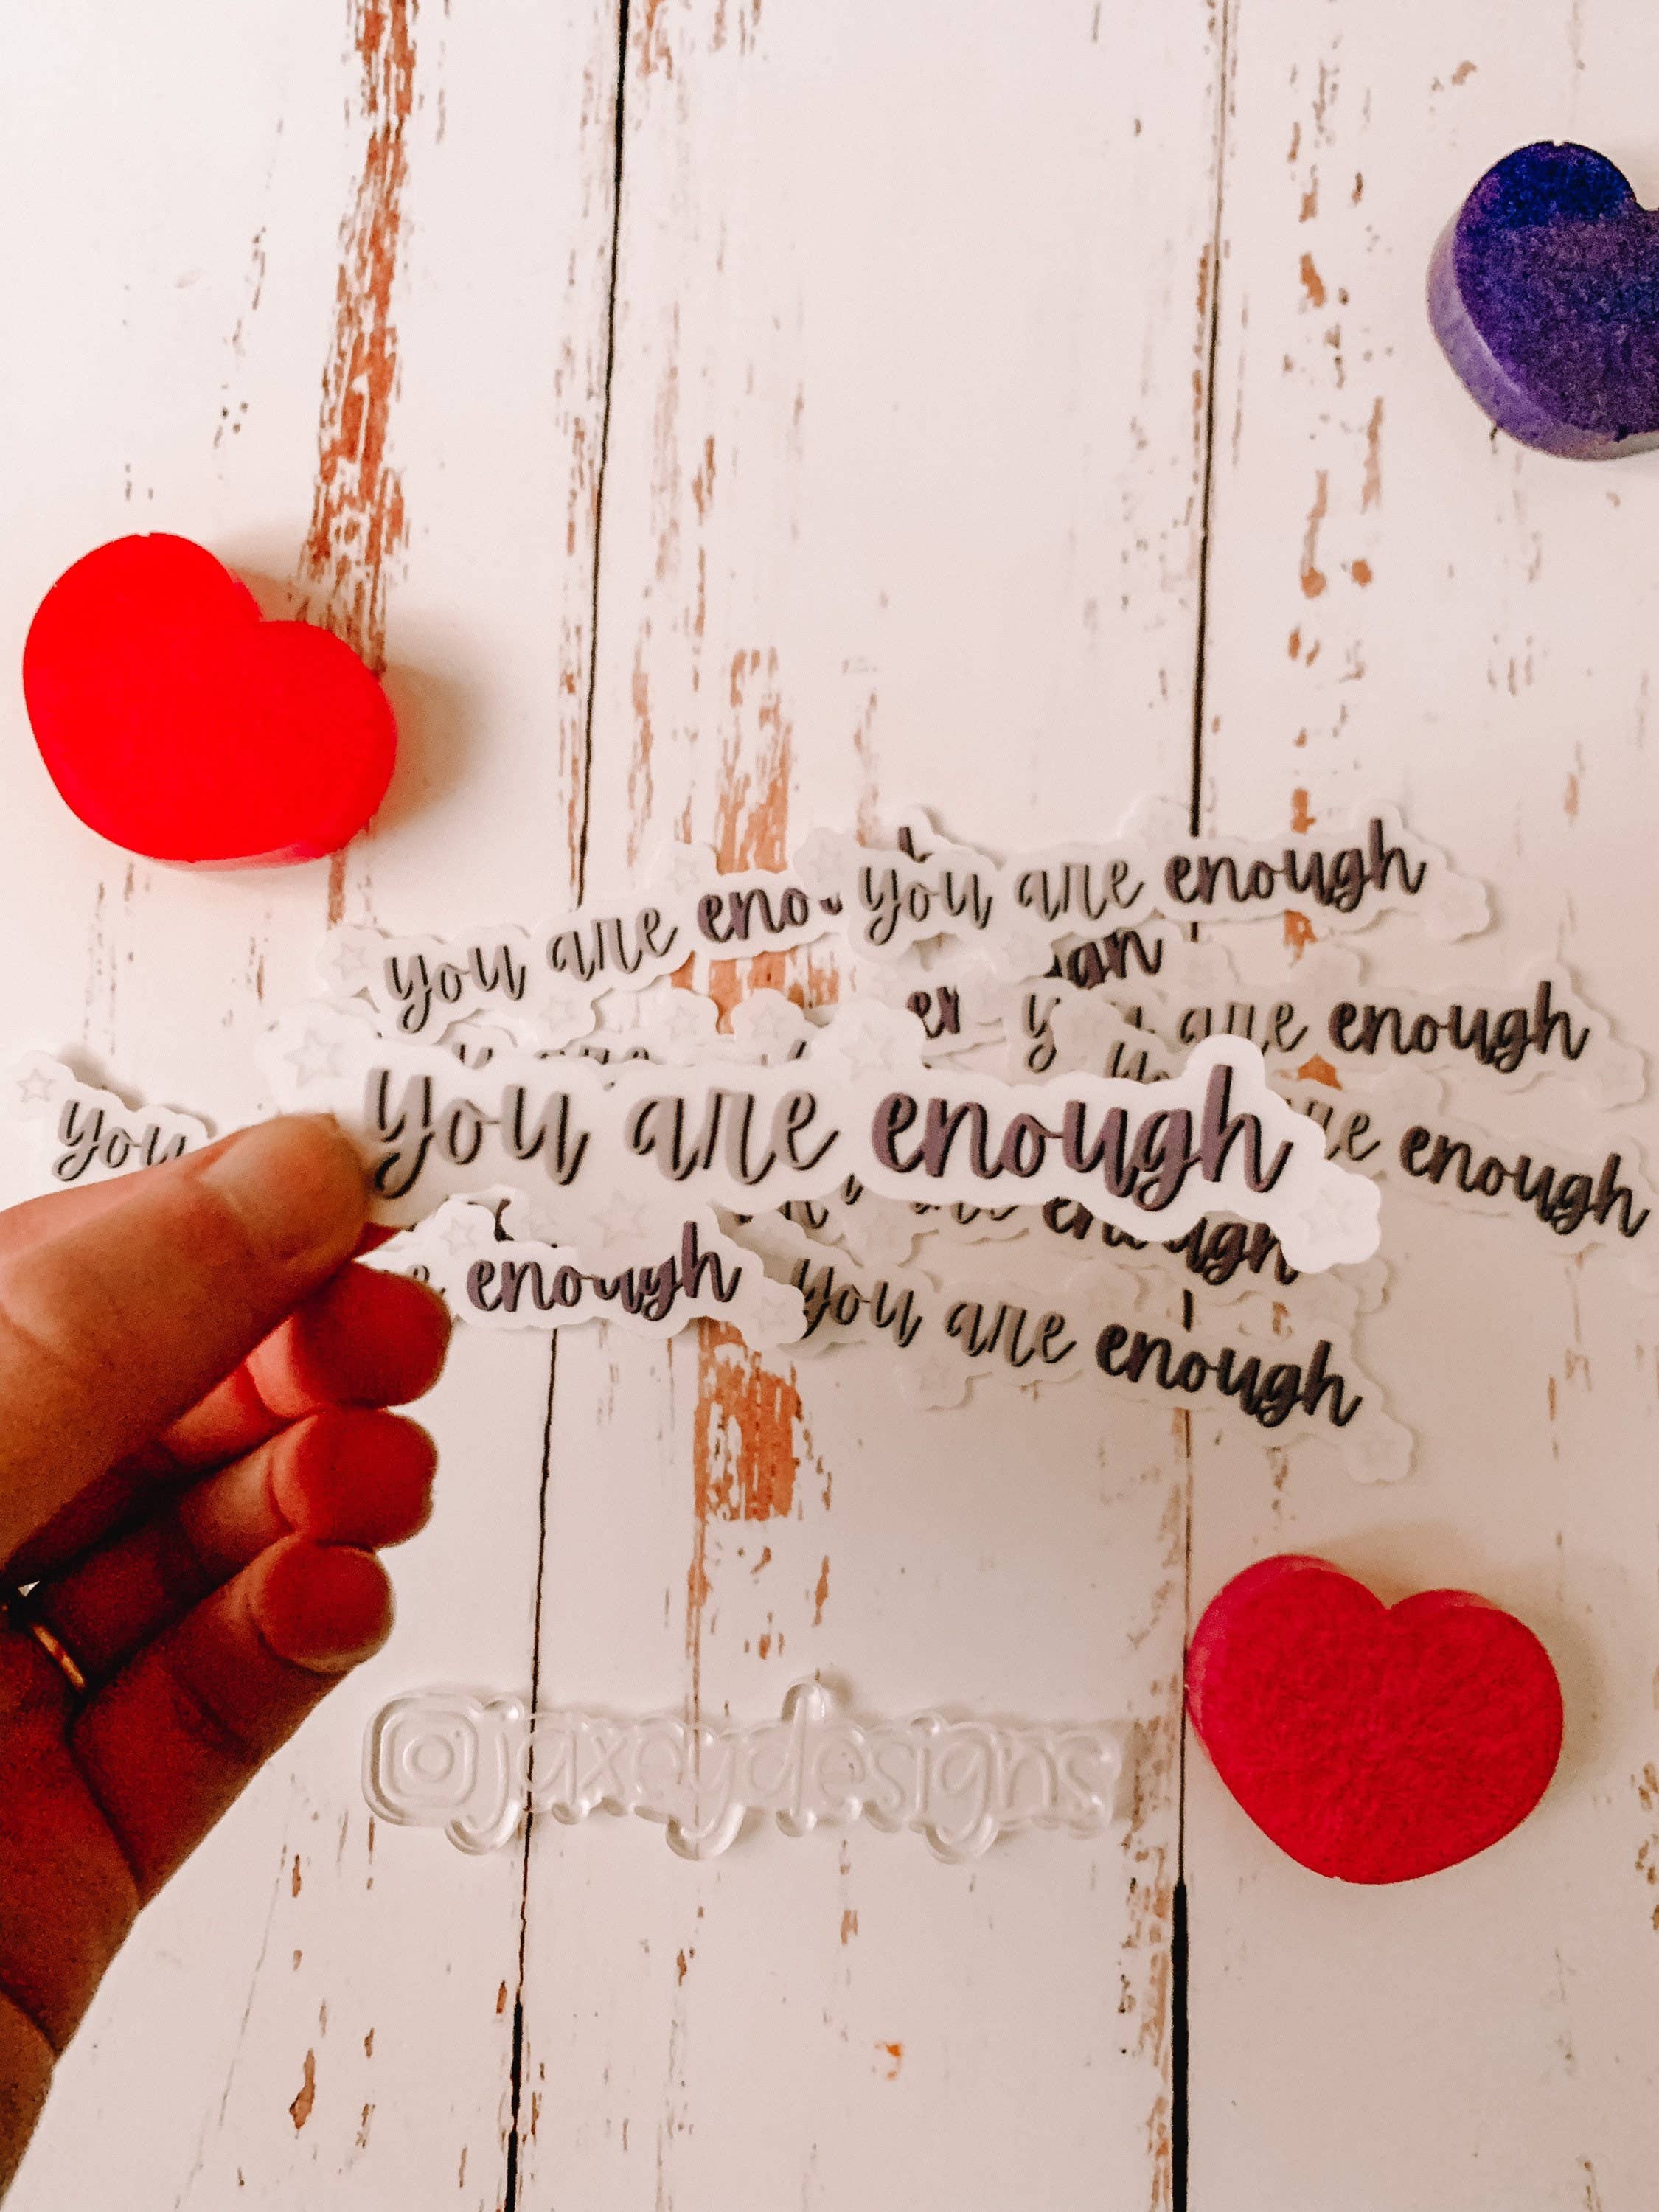 you are eno
you are enough
an
en
y
are enough
you are enough
you
re enough
are enough
enough
you are enough
jaxeydesigns